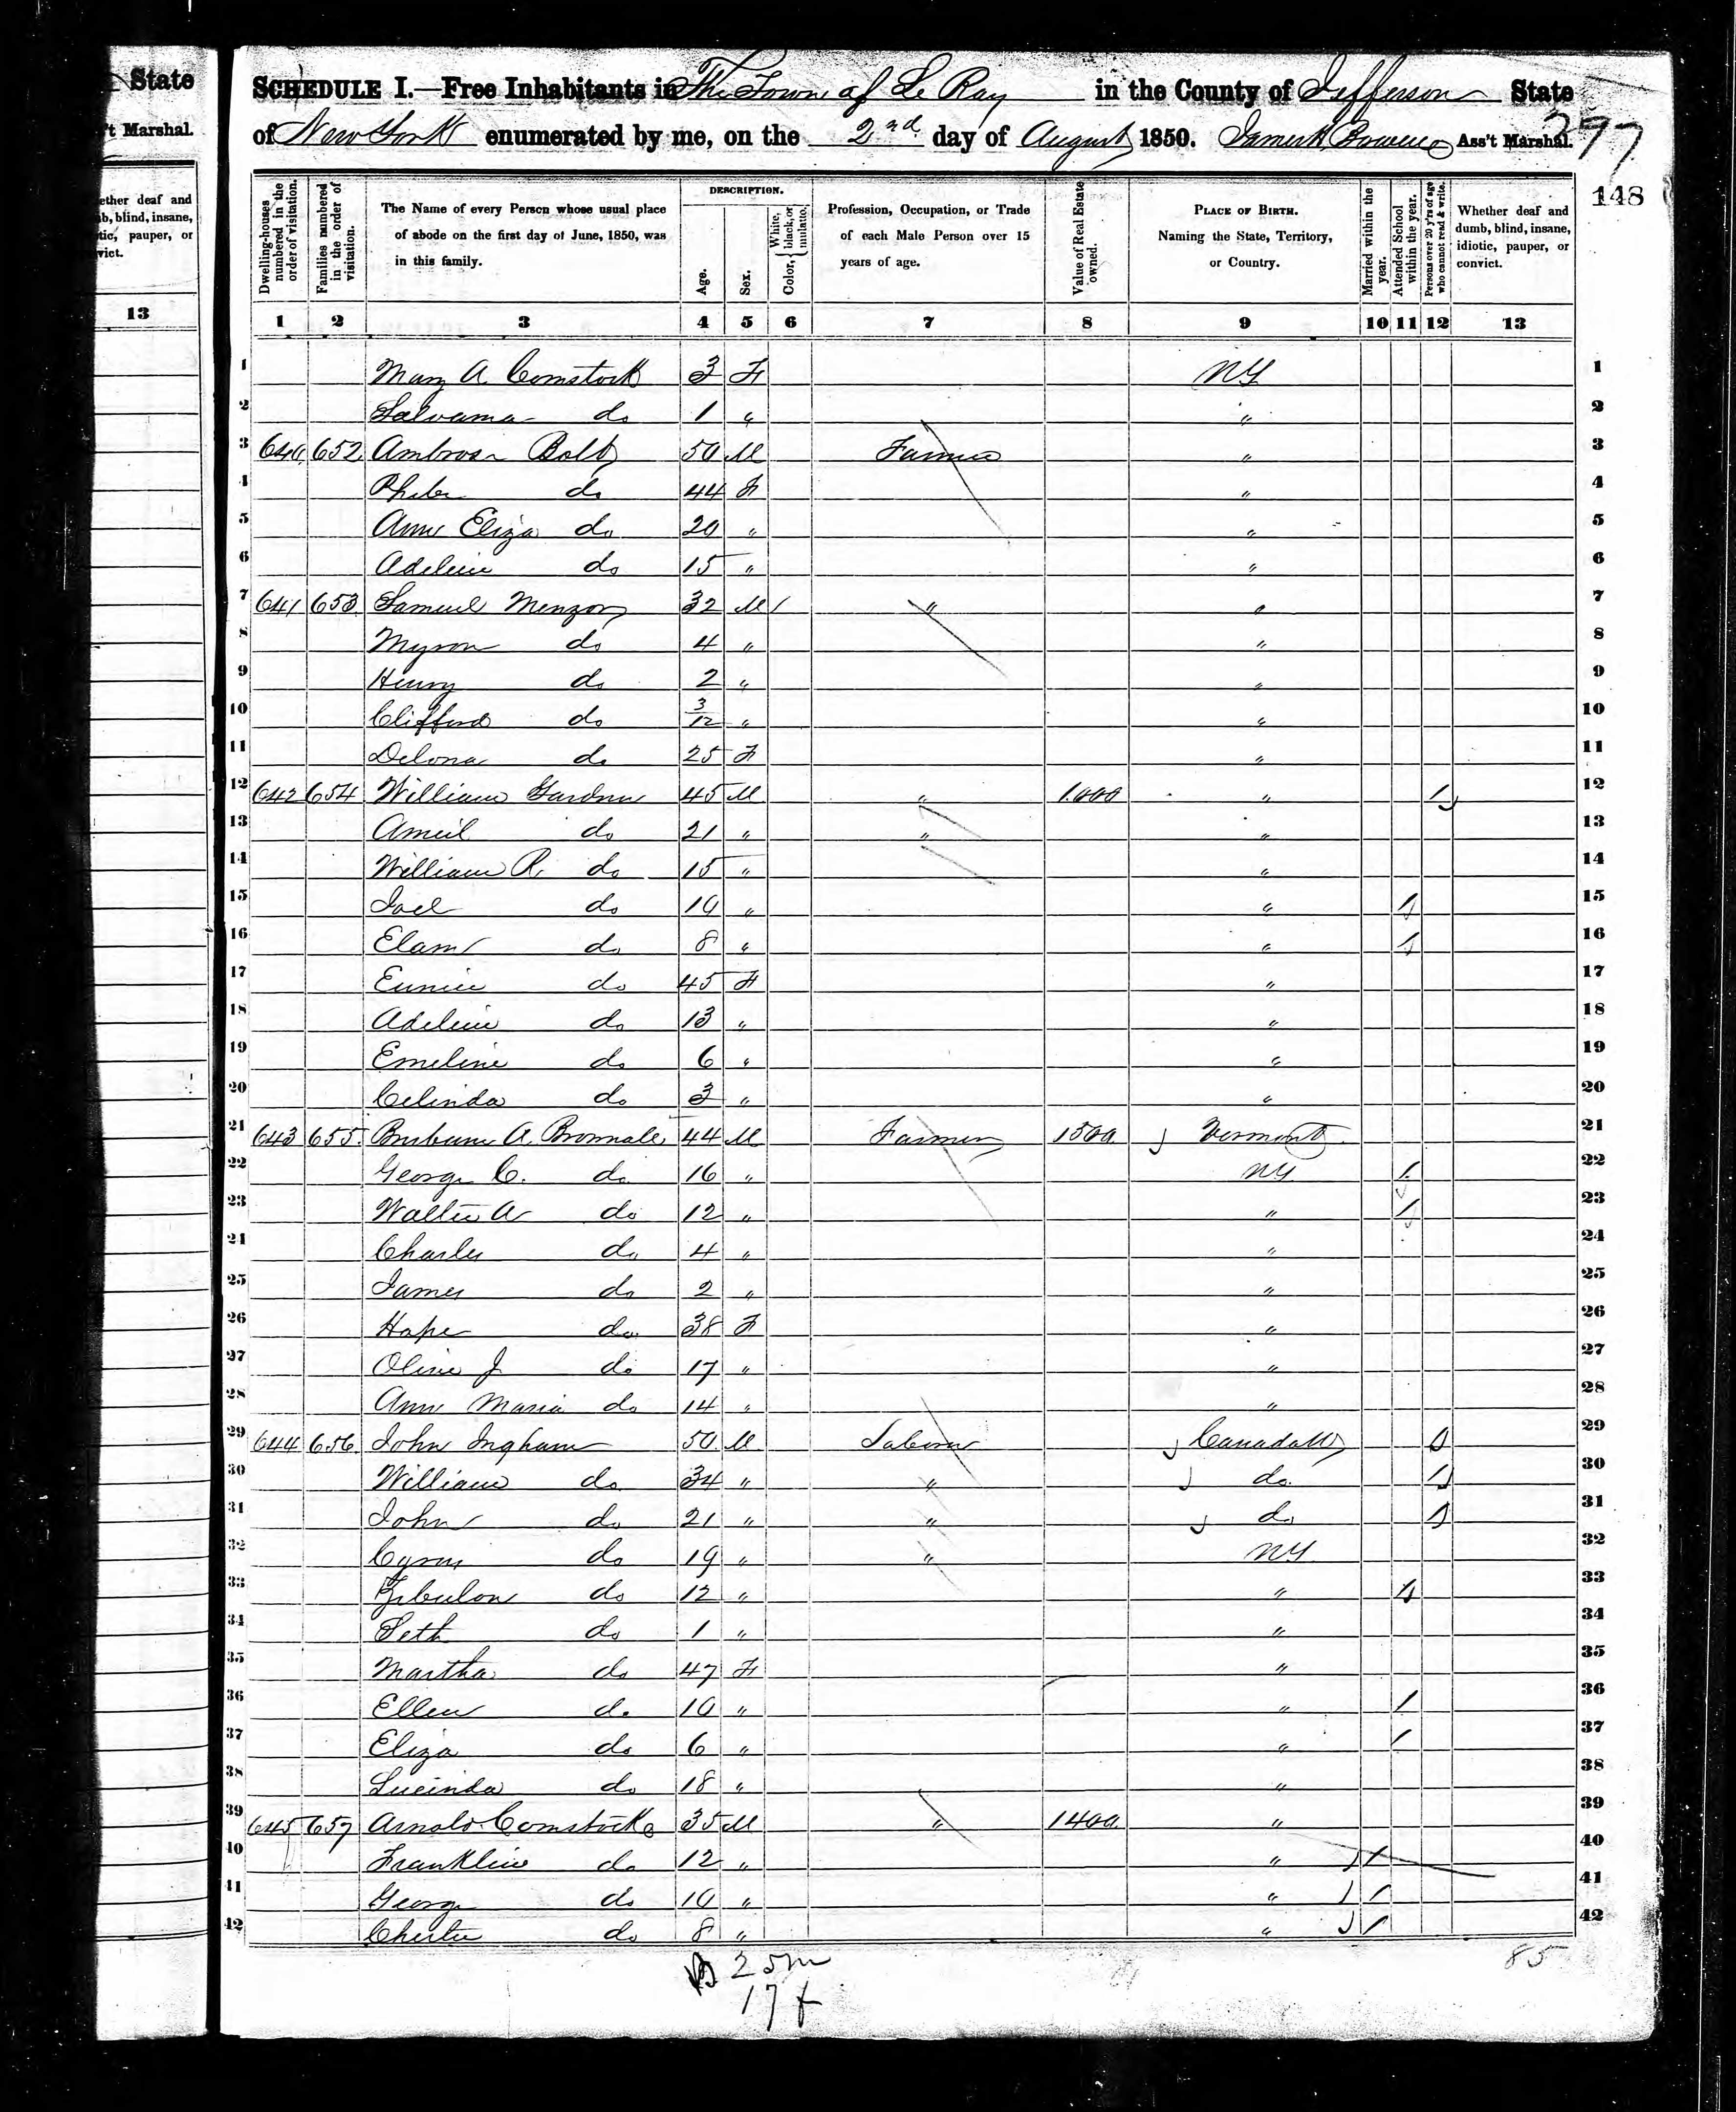 State
't Marshal.
ether deaf and
b, blind, insane,
tic, pauper, or
vict.
13
SCHEDULE I.—Free Inhabitants in The Town of Le Ray in the County of Jefferson State
of New York enumerated by me, on the 2nd day of August 1850. Ass't Marshal.
297
148
Dwelling-houses numbered in the order of visitation.
Families numbered in the order of visitation.
The Name of every Person whose usual place of abode on the first day of June, 1850, was in this family.
DESCRIPTION.
Age.
Sex.
Color, { White, black, or mulatto.
Profession, Occupation, or Trade of each Male Person over 15 years of age.
Value of Real Estate owned.
PLACE OF BIRTH. Naming the State, Territory, or Country.
Married within the year.
Attended School within the year.
Persons over 20 y'rs of age who cannot read & write.
Whether deaf and dumb, blind, insane, idiotic, pauper, or convict.
1 2 3 4 5 6 7 8 9 10 11 12 13
1 Mary A Comstock 3 F NY 1
2 do 1 " " 2
3 640 652 Ambrose Bolt 50 M Farmer " 3
4 Phebe do 44 F " 4
5 Ann Eliza do 20 " " 5
6 Adeline do 15 " " 6
7 641 653 Samuel Menzor 32 M / " " 7
8 Myron do 4 " " 8
9 Henry do 2 " " 9
10 Clifford do 3/12 " " 10
11 Delona do 25 F " 11
12 642 654 William Gardner 45 M " 1000 " 1 12
13 do 21 " " " 13
14 William R. do 15 " " 14
15 Joel do 10 " " 1 15
16 Elam do 8 " " 1 16
17 Eunice do 45 F " 17
18 Adeline do 13 " " 18
19 Emeline do 6 " " 19
20 Celinda do 3 " " 20
21 643 655 A. 44 M Farmer 1500 Vermont 21
22 George C. do 16 " NY 1 22
23 Walter A do 12 " " 1 23
24 Charles do 4 " " 24
25 James do 2 " " 25
26 Hope do 38 F " 26
27 Olive J do 17 " " 27
28 Ann Maria do 14 " " 28
29 644 656 John Ingham 50 M Laborer Canada 1 29
30 William do 34 " " do 1 30
31 John do 21 " " do 1 31
32 Cyrus do 19 " " NY 32
33 Zebulon do 12 " " 1 33
34 Seth do 1 " " 34
35 Martha do 47 F " 35
36 Ellen do 10 " " 1 36
37 Eliza do 6 " " 1 37
38 Lucinda do 18 " " 38
39 645 657 Arnold Comstock 35 M " 1400 " 39
40 Franklin do 12 " " 1 40
41 George do 10 " " 1 41
42 Chester do 8 " " 1 42
25 m
17 f
85